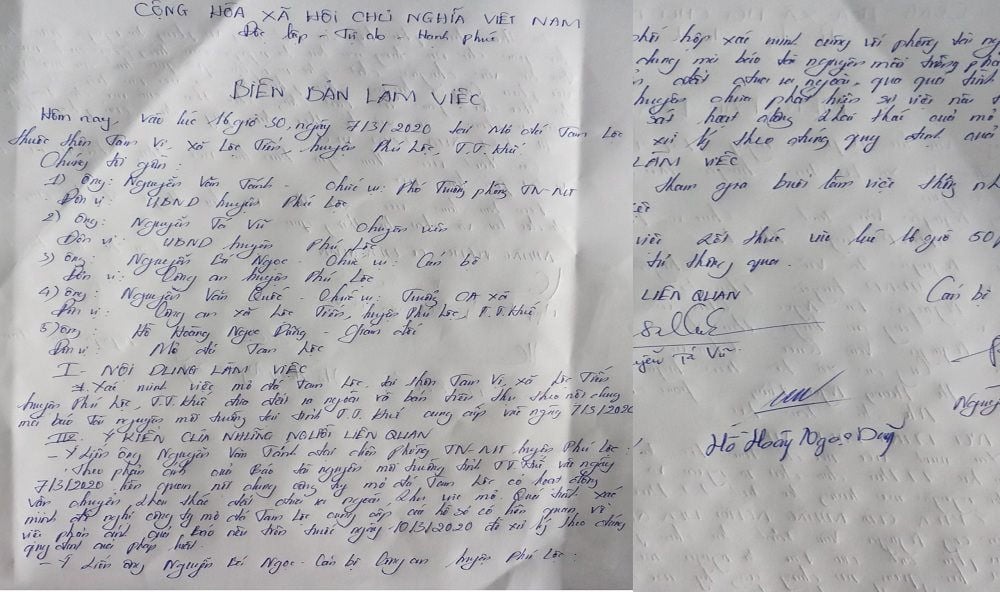 CỘNG HÒA XÃ HỘI CHỦ NGHĨA VIỆT NAM
Độc lập - Tự do - Hạnh phúc
BIÊN BẢN LÀM VIỆC
Hôm nay, vào lúc 16 giờ 30, ngày 7/3/2020 tại Mỏ đá Tam Lộc
thuộc thôn Tam Vị, xã Lộc Tiến, huyện Phú Lộc, T.T.Huế.
Chúng tôi gồm:
1) Ông: Nguyễn Văn Tánh - Chức vụ: Phó Trưởng phòng TN-MT
Đơn vị: UBND huyện Phú Lộc
2) Ông: Nguyễn Tá Vũ Chuyên viên
Đơn vị: UBND huyện Phú Lộc
3) Ông: Nguyễn Bá Ngọc - Chức vụ: Cán bộ
Đơn vị: Công an huyện Phú Lộc
4) Ông: Nguyễn Văn Quốc - Chức vụ: Trưởng CA xã
Đơn vị: Công an xã Lộc Tiến, huyện Phú Lộc, T.T.Huế
5) Ông: Hồ Hoàng Ngọc Dũng - Giám đốc
Đơn vị: Mỏ đá Tam Lộc
I - NỘI DUNG LÀM VIỆC
Xác minh việc mỏ đá Tam Lộc, tại thôn Tam Vị, xã Lộc Tiến
huyện Phú Lộc, T.T.Huế đưa đất ra ngoài và bán trên thu theo nội dung
mà báo tài nguyên môi trường tại tỉnh T.T.Huế cung cấp vào ngày 7/3/2020
III - Ý KIẾN CỦA NHỮNG NGƯỜI LIÊN QUAN
- Ý kiến ông Nguyễn Văn Tánh đại diện phòng TN-MT huyện Phú Lộc:
Theo phản ánh của Báo tài nguyên môi trường tỉnh T.T.Huế vào ngày
7/3/2020 liên quan nội dung công ty mỏ đá Tam Lộc có hoạt động
vận chuyển khai thác đất đưa ra ngoài khu vực mỏ. Quá trình xác
minh đề nghị công ty mỏ đá Tam Lộc cung cấp các hồ sơ có liên quan về
việc phản ánh của báo nêu trên trước ngày 10/3/2020 để xử lý theo đúng
quy định của pháp luật.
- Ý kiến ông Nguyễn Bá Ngọc - Cán bộ Công an huyện Phú Lộc:
phối hợp xác minh cùng với phòng tài ng
dung mà báo tài nguyên môi trường phả
đất đưa ra ngoài, qua quá trình
huyện chưa phát hiện sự việc nêu t
sát hoạt động khai thác của mỏ
xử lý theo đúng quy định của
LÀM VIỆC
tham gia buổi làm việc thống nh
việc kết thúc vào lúc 16 giờ 50
tư thông qua.
LIÊN QUAN Cán bộ
Tá Vũ
Nguyễ
Hồ Hoàng Ngọc Dũng